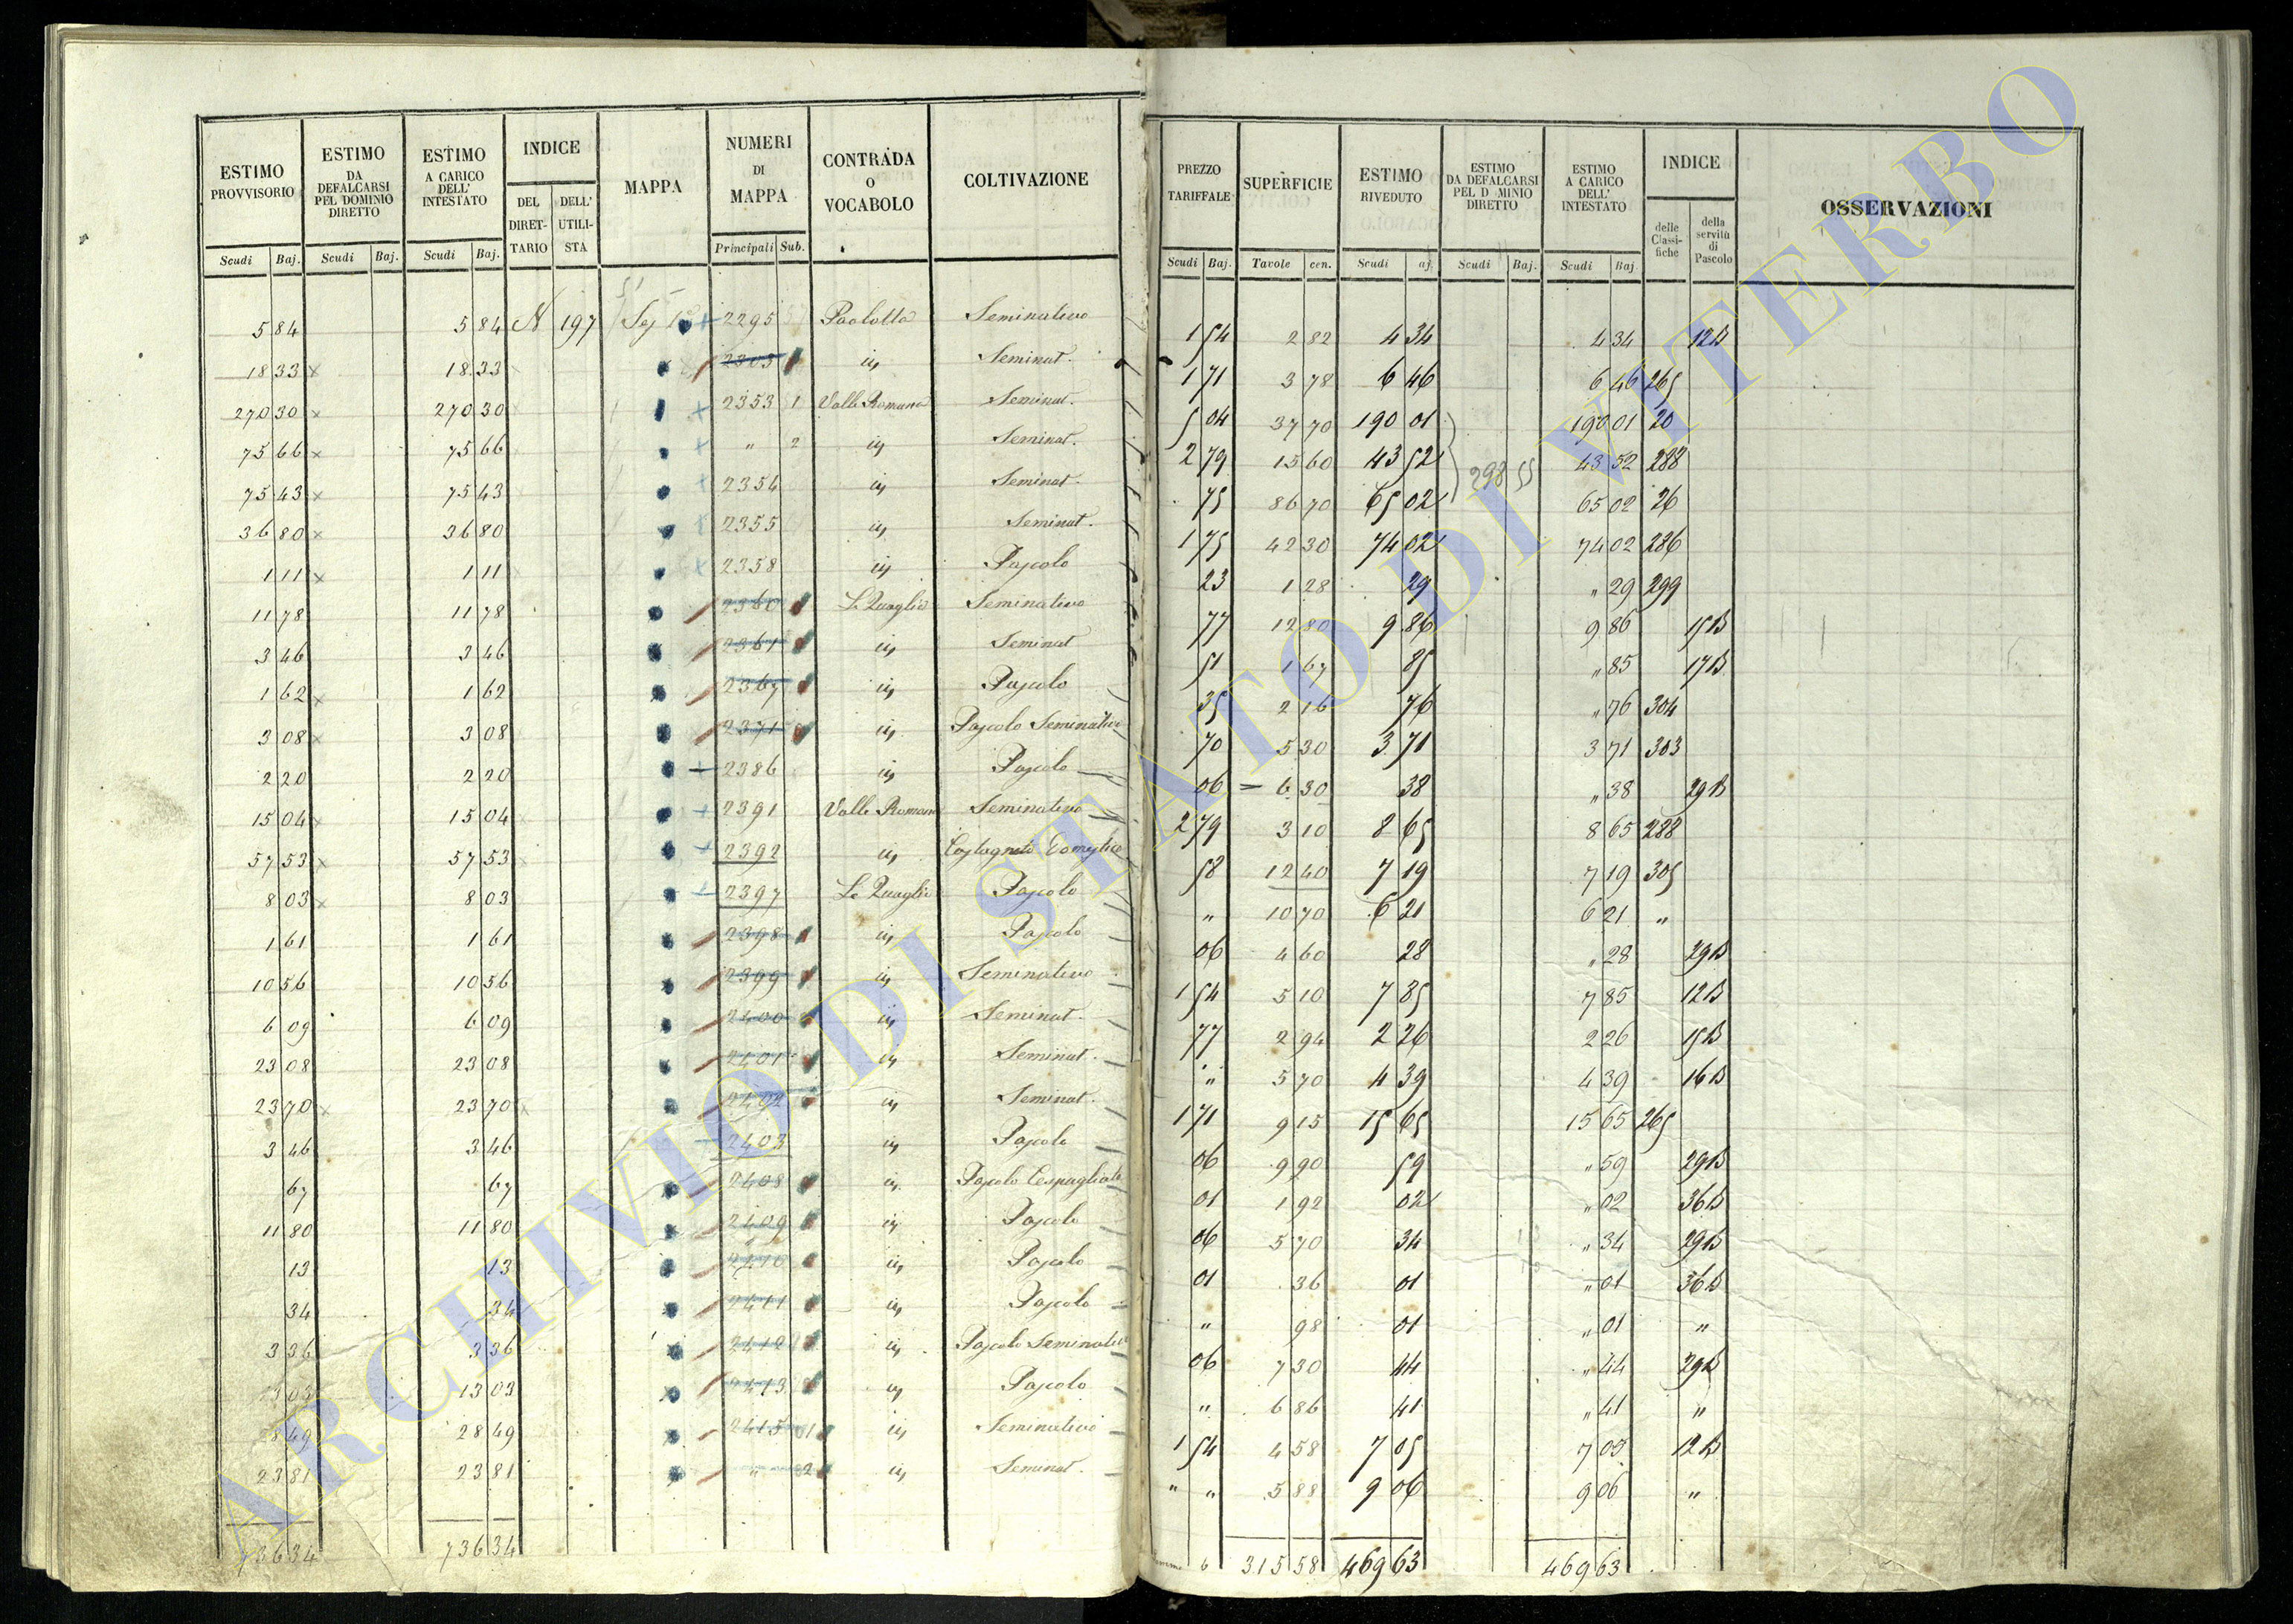 ESTIMO PROVVISORIO | ESTIMO DA DEFALCARSI PEL DOMINIO DIRETTO | ESTIMO A CARICO DELL' INTESTATO | INDICE | MAPPA | NUMERI DI MAPPA | CONTRADA O VOCABOLO | COLTIVAZIONE
DEL DIRETTARIO | DELL' UTILISTA
Scudi | Baj. | Scudi | Baj. | Scudi | Baj. | Principali | Sub.
5 84 | 5 84 | N | 197 | 2295 | Paolotta | Seminativo
18 33 x | 18 33 | 2303 | id | Seminat.
270 30 x | 270 30 | 2353 1 | Valle Romana | Seminat.
75 66 x | 75 66 | " 2 | id | Seminat.
75 43 x | 75 43 | 2354 | id | Seminat.
36 80 x | 36 80 | 2355 | id | Seminat.
1 11 x | 1 11 | 2358 | id | Pascolo
11 78 | 11 78 | 2360 | Le Quaglie | Seminativo
3 46 | 3 46 | 2361 | id | Seminat
1 62 x | 1 62 | 2367 | id | Pascolo
3 08 x | 3 08 | 2371 | id | Pascolo Seminativo
2 20 | 2 20 | 2386 | id | Pascolo
15 04 x | 15 04 | 2391 | Valle Romana | Seminativo
57 53 x | 57 53 | 2392 | id | Castagneto Domestico
8 03 x | 8 03 | 2397 | Le Quaglie | Pascolo
1 61 | 1 61 | 2398 | id | Pascolo
10 56 | 10 56 | 2399 | id | Seminativo
6 09 | 6 09 | 2400 | id | Seminat.
23 08 | 23 08 | 2401 | id | Seminat.
23 70 x | 23 70 | 2402 | id | Seminat.
3 46 | 3 46 | 2403 | id | Pascolo
67 | 67 | 2408 | id | Pascolo Cespugliato
11 80 | 11 80 | 2409 | id | Pascolo
13 | 13 | 2410 | id | Pascolo
34 | 34 | 2411 | id | Pascolo
3 36 | 3 36 | 2412 | id | Pascolo Seminativo
13 03 | 13 03 | 2413 | id | Pascolo
28 49 | 28 49 | 2415 1 | id | Seminativo
23 81 | 23 81 | " 2 | id | Seminat.
736 34 | 736 34
PREZZO TARIFFALE | SUPERFICIE | ESTIMO RIVEDUTO | ESTIMO DA DEFALCARSI PEL D MINIO DIRETTO | ESTIMO A CARICO DELL' INTESTATO | INDICE | OSSERVAZIONI
delle Classifiche | della servitù di Pascolo
Scudi | Baj. | Tavole | cen. | Scudi | aj. | Scudi | Baj. | Scudi | Baj.
1 54 | 2 82 | 4 34 | 4 34 | 12B
1 71 | 3 78 | 6 46 | 6 46 | 265
5 04 | 37 70 | 190 01 | 190 01 | 20
2 79 | 15 60 | 43 52 | 298 55 | 43 52 | 288
75 | 86 70 | 65 02 | 65 02 | 26
1 75 | 42 30 | 74 02 | 74 02 | 286
23 | 1 28 | 29 | " 29 | 299
77 | 12 80 | 9 86 | 9 86 | 15B
51 | 1 67 | 85 | " 85 | 17B
35 | 2 16 | 76 | " 76 | 304
70 | 5 30 | 3 71 | 3 71 | 303
06 | 6 30 | 38 | " 38 | 29B
2 79 | 3 10 | 8 65 | 8 65 | 288
58 | 12 40 | 7 19 | 7 19 | 305
" | 10 70 | 6 21 | 6 21 | "
06 | 4 60 | 28 | " 28 | 29B
1 54 | 5 10 | 7 85 | 7 85 | 12B
77 | 2 94 | 2 26 | 2 26 | 15B
" | 5 70 | 4 39 | 4 39 | 16B
1 71 | 9 15 | 15 65 | 15 65 | 265
06 | 9 90 | 59 | " 59 | 29B
01 | 1 92 | 02 | " 02 | 36B
06 | 5 70 | 34 | " 34 | 29B
01 | 36 | 01 | " 01 | 36B
" | 98 | 01 | " 01 | "
06 | 7 30 | 44 | " 44 | 29B
" | 6 86 | 41 | " 41 | "
1 54 | 4 58 | 7 05 | 7 05 | 12B
" " | 5 88 | 9 06 | 9 06 | "
6 | 315 58 | 469 63 | 469 63
ARCHIVIO DI STATO DI VITERBO